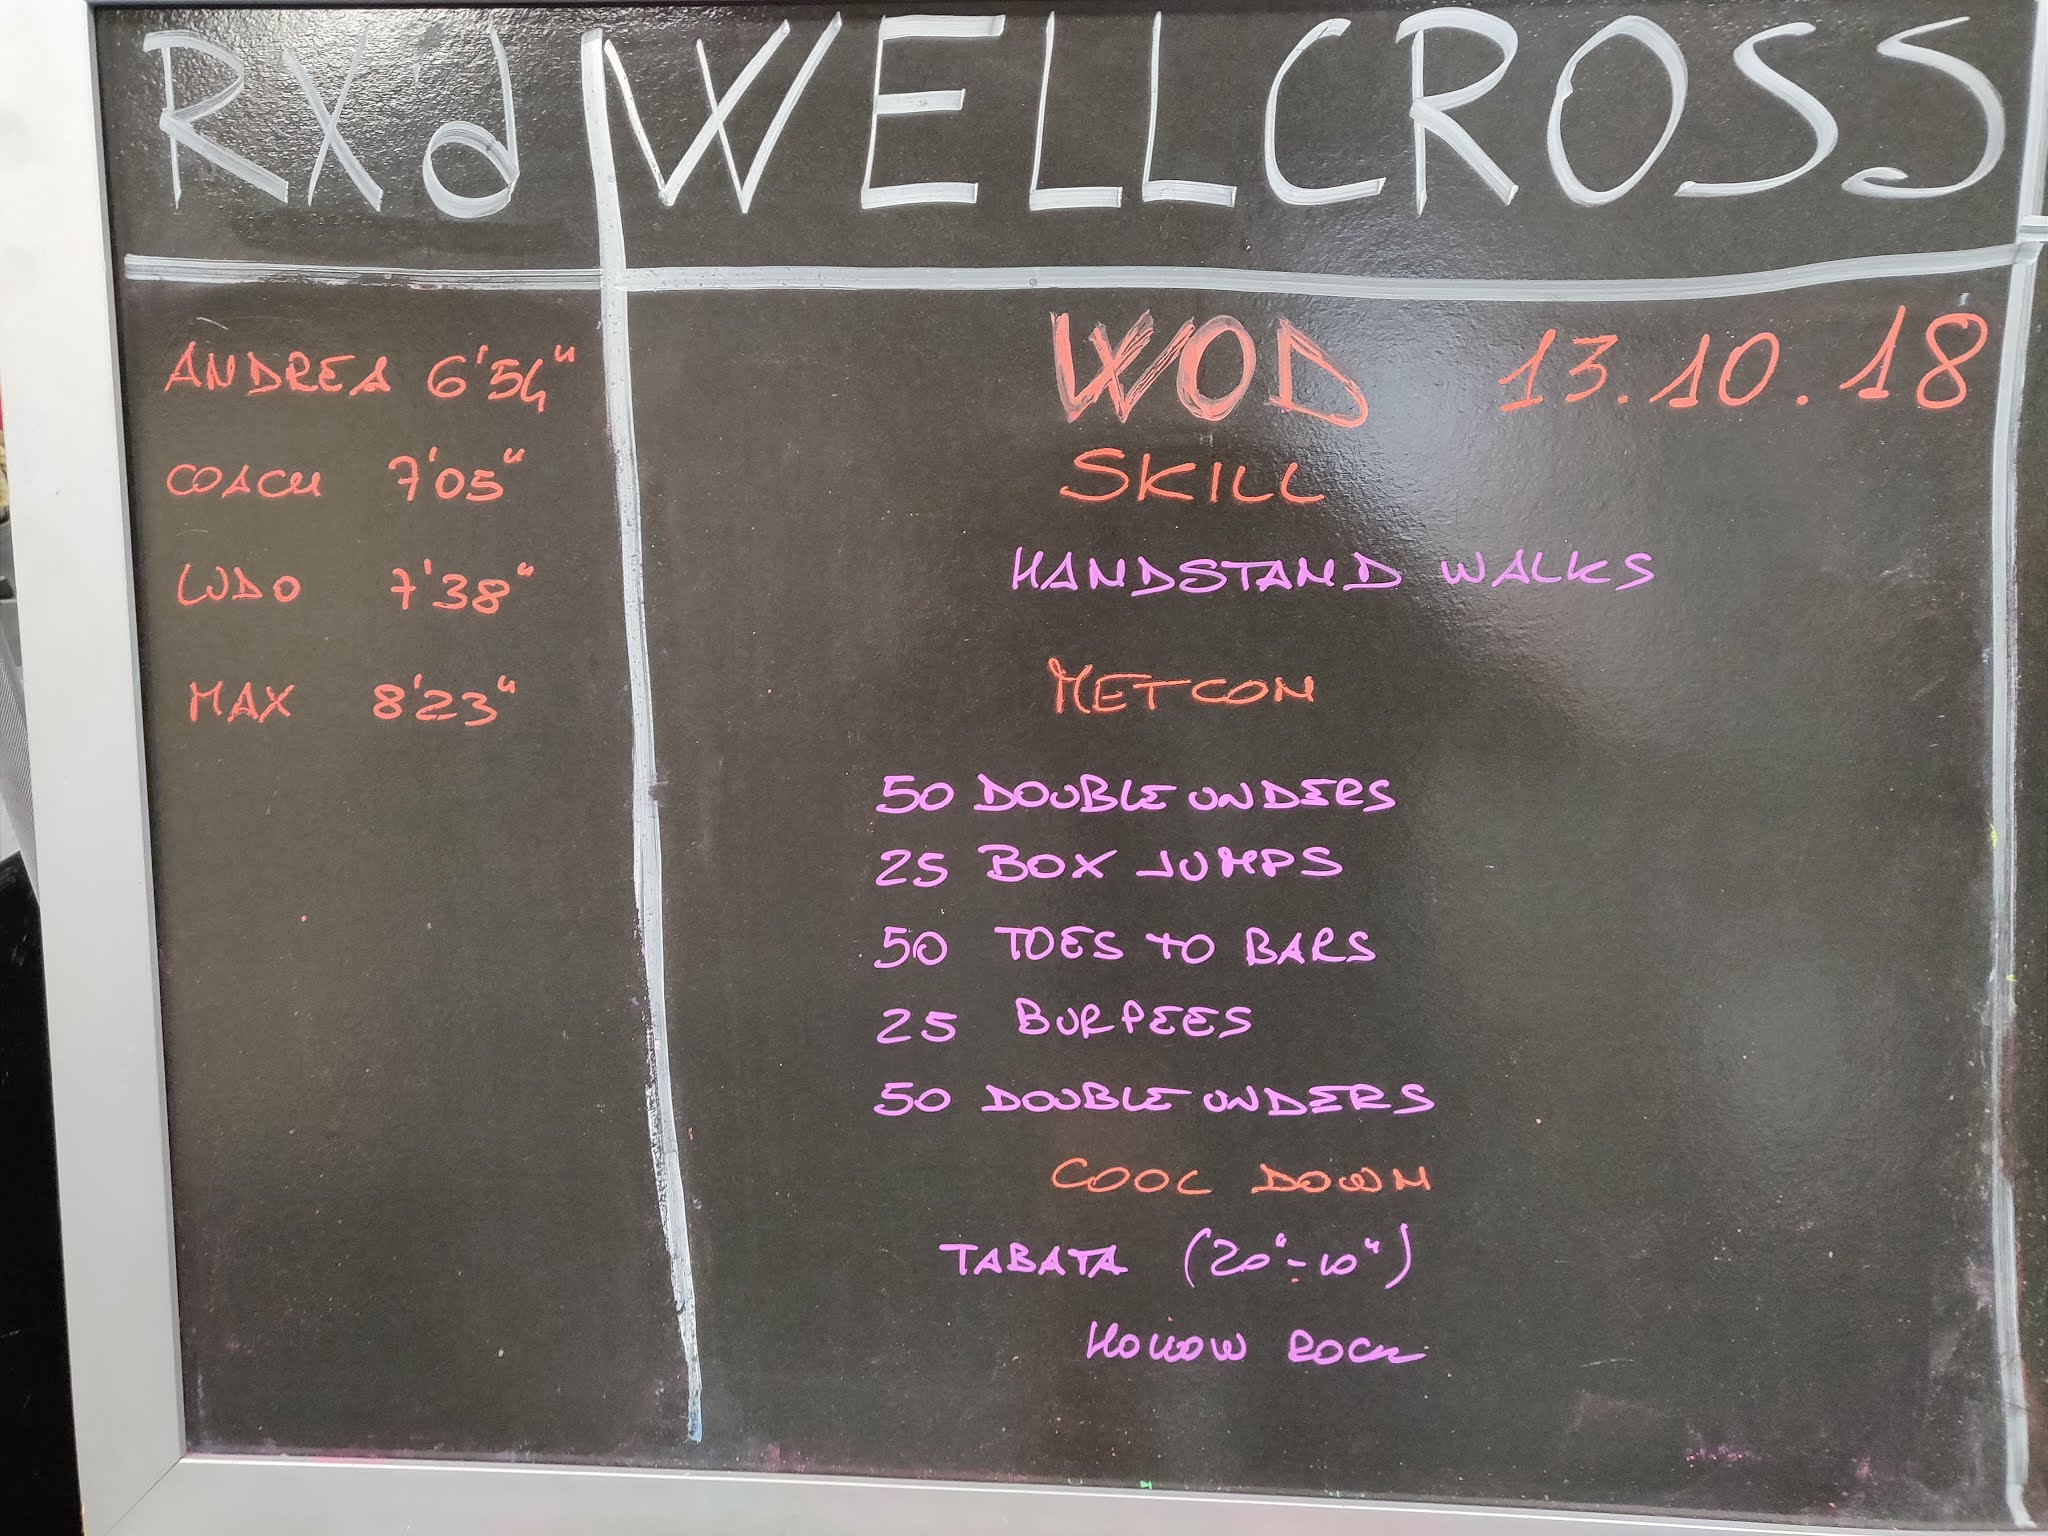 RX'd
WELLCROSS
ANDREA 6'54"
COACH 7'05"
LUDO 7'38"
MAX 8'23"
WOD 13.10.18
SKILL
HANDSTAND WALKS
METCON
50 DOUBLE UNDERS
25 BOX JUMPS
50 TOES TO BARS
25 BURPEES
50 DOUBLE UNDERS
COOL DOWN
TABATA (20"-10")
HOLLOW ROCK